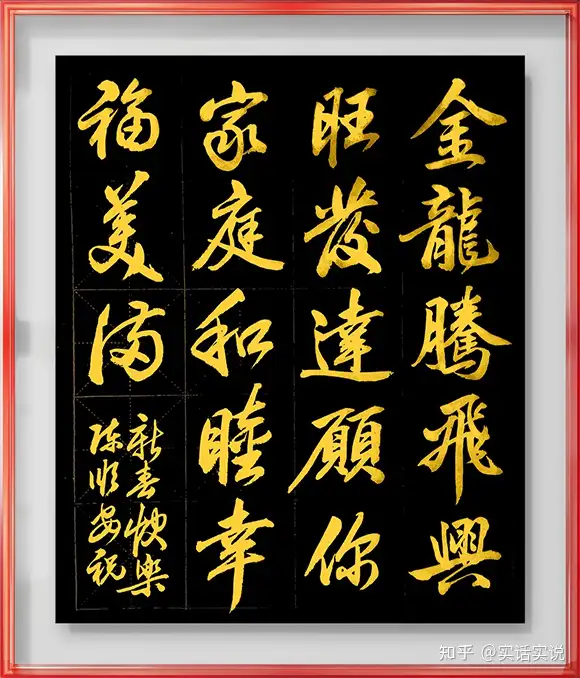 金龍騰飛興
旺發達願你
家庭和睦幸
福美滿
新春快樂
陈顺安祝
知乎 @实话实说